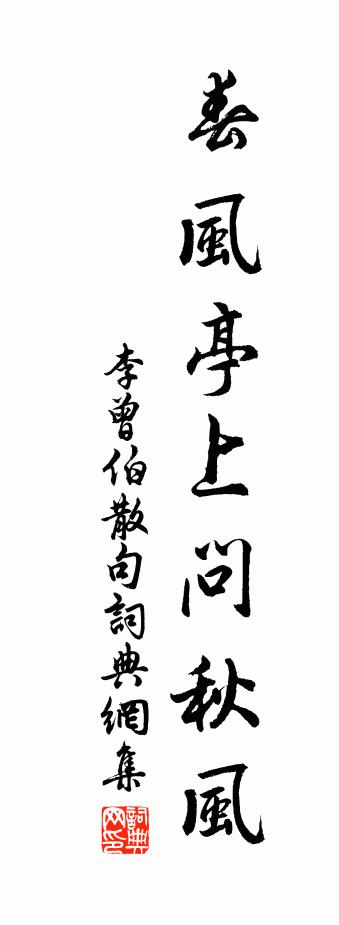 春風亭上問秋風
李曾伯散句詞典網集
詞典网印